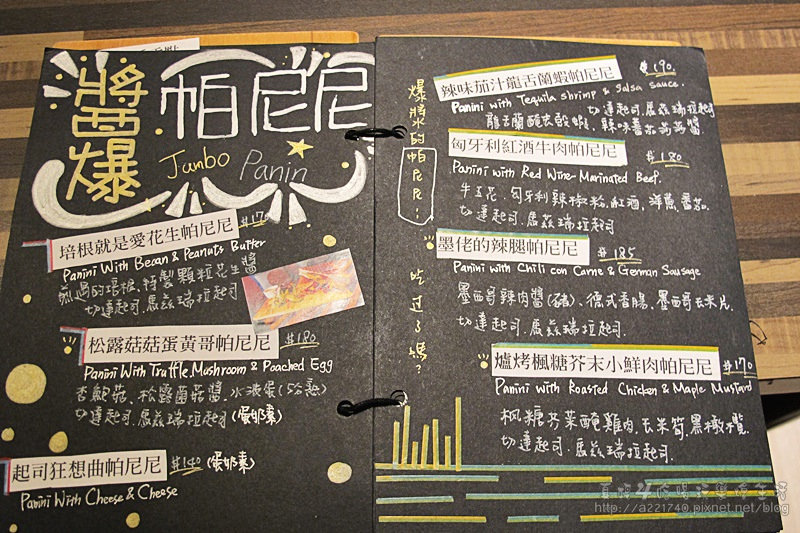 醬爆
帕尼尼
Junbo Panin
培根就是愛花生帕尼尼 $170
Panini With Becan & Peanuts Butter
煎過的培根、特製顆粒花生醬
切達起司.馬茲瑞拉起司
松露菇菇蛋黃哥帕尼尼 $180
Panini With Truffle Mushroom & Poached Egg
杏鮑菇、松露菌菇醬、水波蛋(5分熟)
切達起司.馬茲瑞拉起司(蛋奶素)
起司狂想曲帕尼尼 $140 (蛋奶素)
Panini With Cheese & Cheese
爆漿的帕尼尼;吃过了嗎?
辣味茄汁龍舌蘭蝦帕尼尼 $190
Panini with Tequila shrimp & salsa sauce.
切達起司.馬茲瑞拉起司
龍舌蘭醃去殼蝦、辣味蕃茄莎莎醬
匈牙利紅酒牛肉帕尼尼 $180
Panini with Red Wine-Marinated Beef.
牛五花、匈牙利辣椒粉.紅酒、洋蔥、番茄.
切達起司.馬茲瑞拉起司
墨佬的辣腿帕尼尼 $185
Panini with Chili con Carne & German Sausage
墨西哥辣肉醬(豬)、德式香腸、墨西哥玉米片.
切達起司.馬茲瑞拉起司.
爐烤楓糖芥末小鮮肉帕尼尼 $170
Panini with Roasted Chicken & Maple Mustard
楓糖芥茉醃雞肉.玉米筍.黑橄欖.
切達起司.馬茲瑞拉起司.
http://a221740.pixnet.net/blog